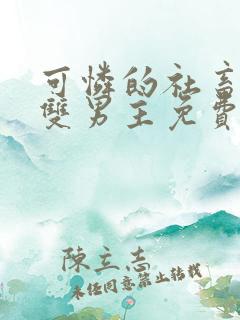 可憐的社畜
雙男主免費
陳立志
未經同意禁止轉載